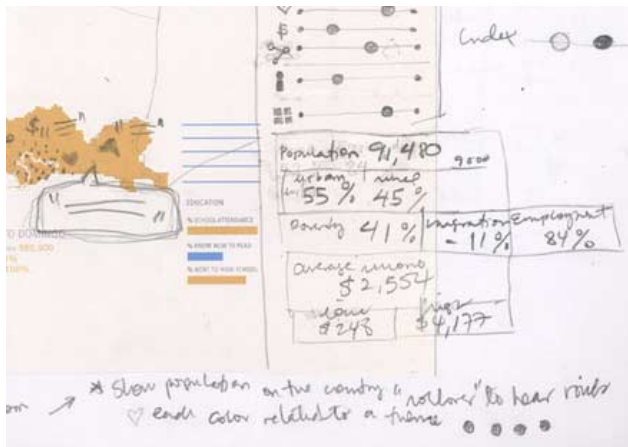 Index
$
Population 91,480
9000
urban
rural
55% 45%
Poverty 41%
- 11%
Employment
84%
average
$2,554
$248
$4,177
EDUCATION
% SCHOOL ATTENDANCE
% KNOW HOW TO READ
% WENT TO HIGH SCHOOL
* Show population on the country "rollover" to hear
♡ each color related to a